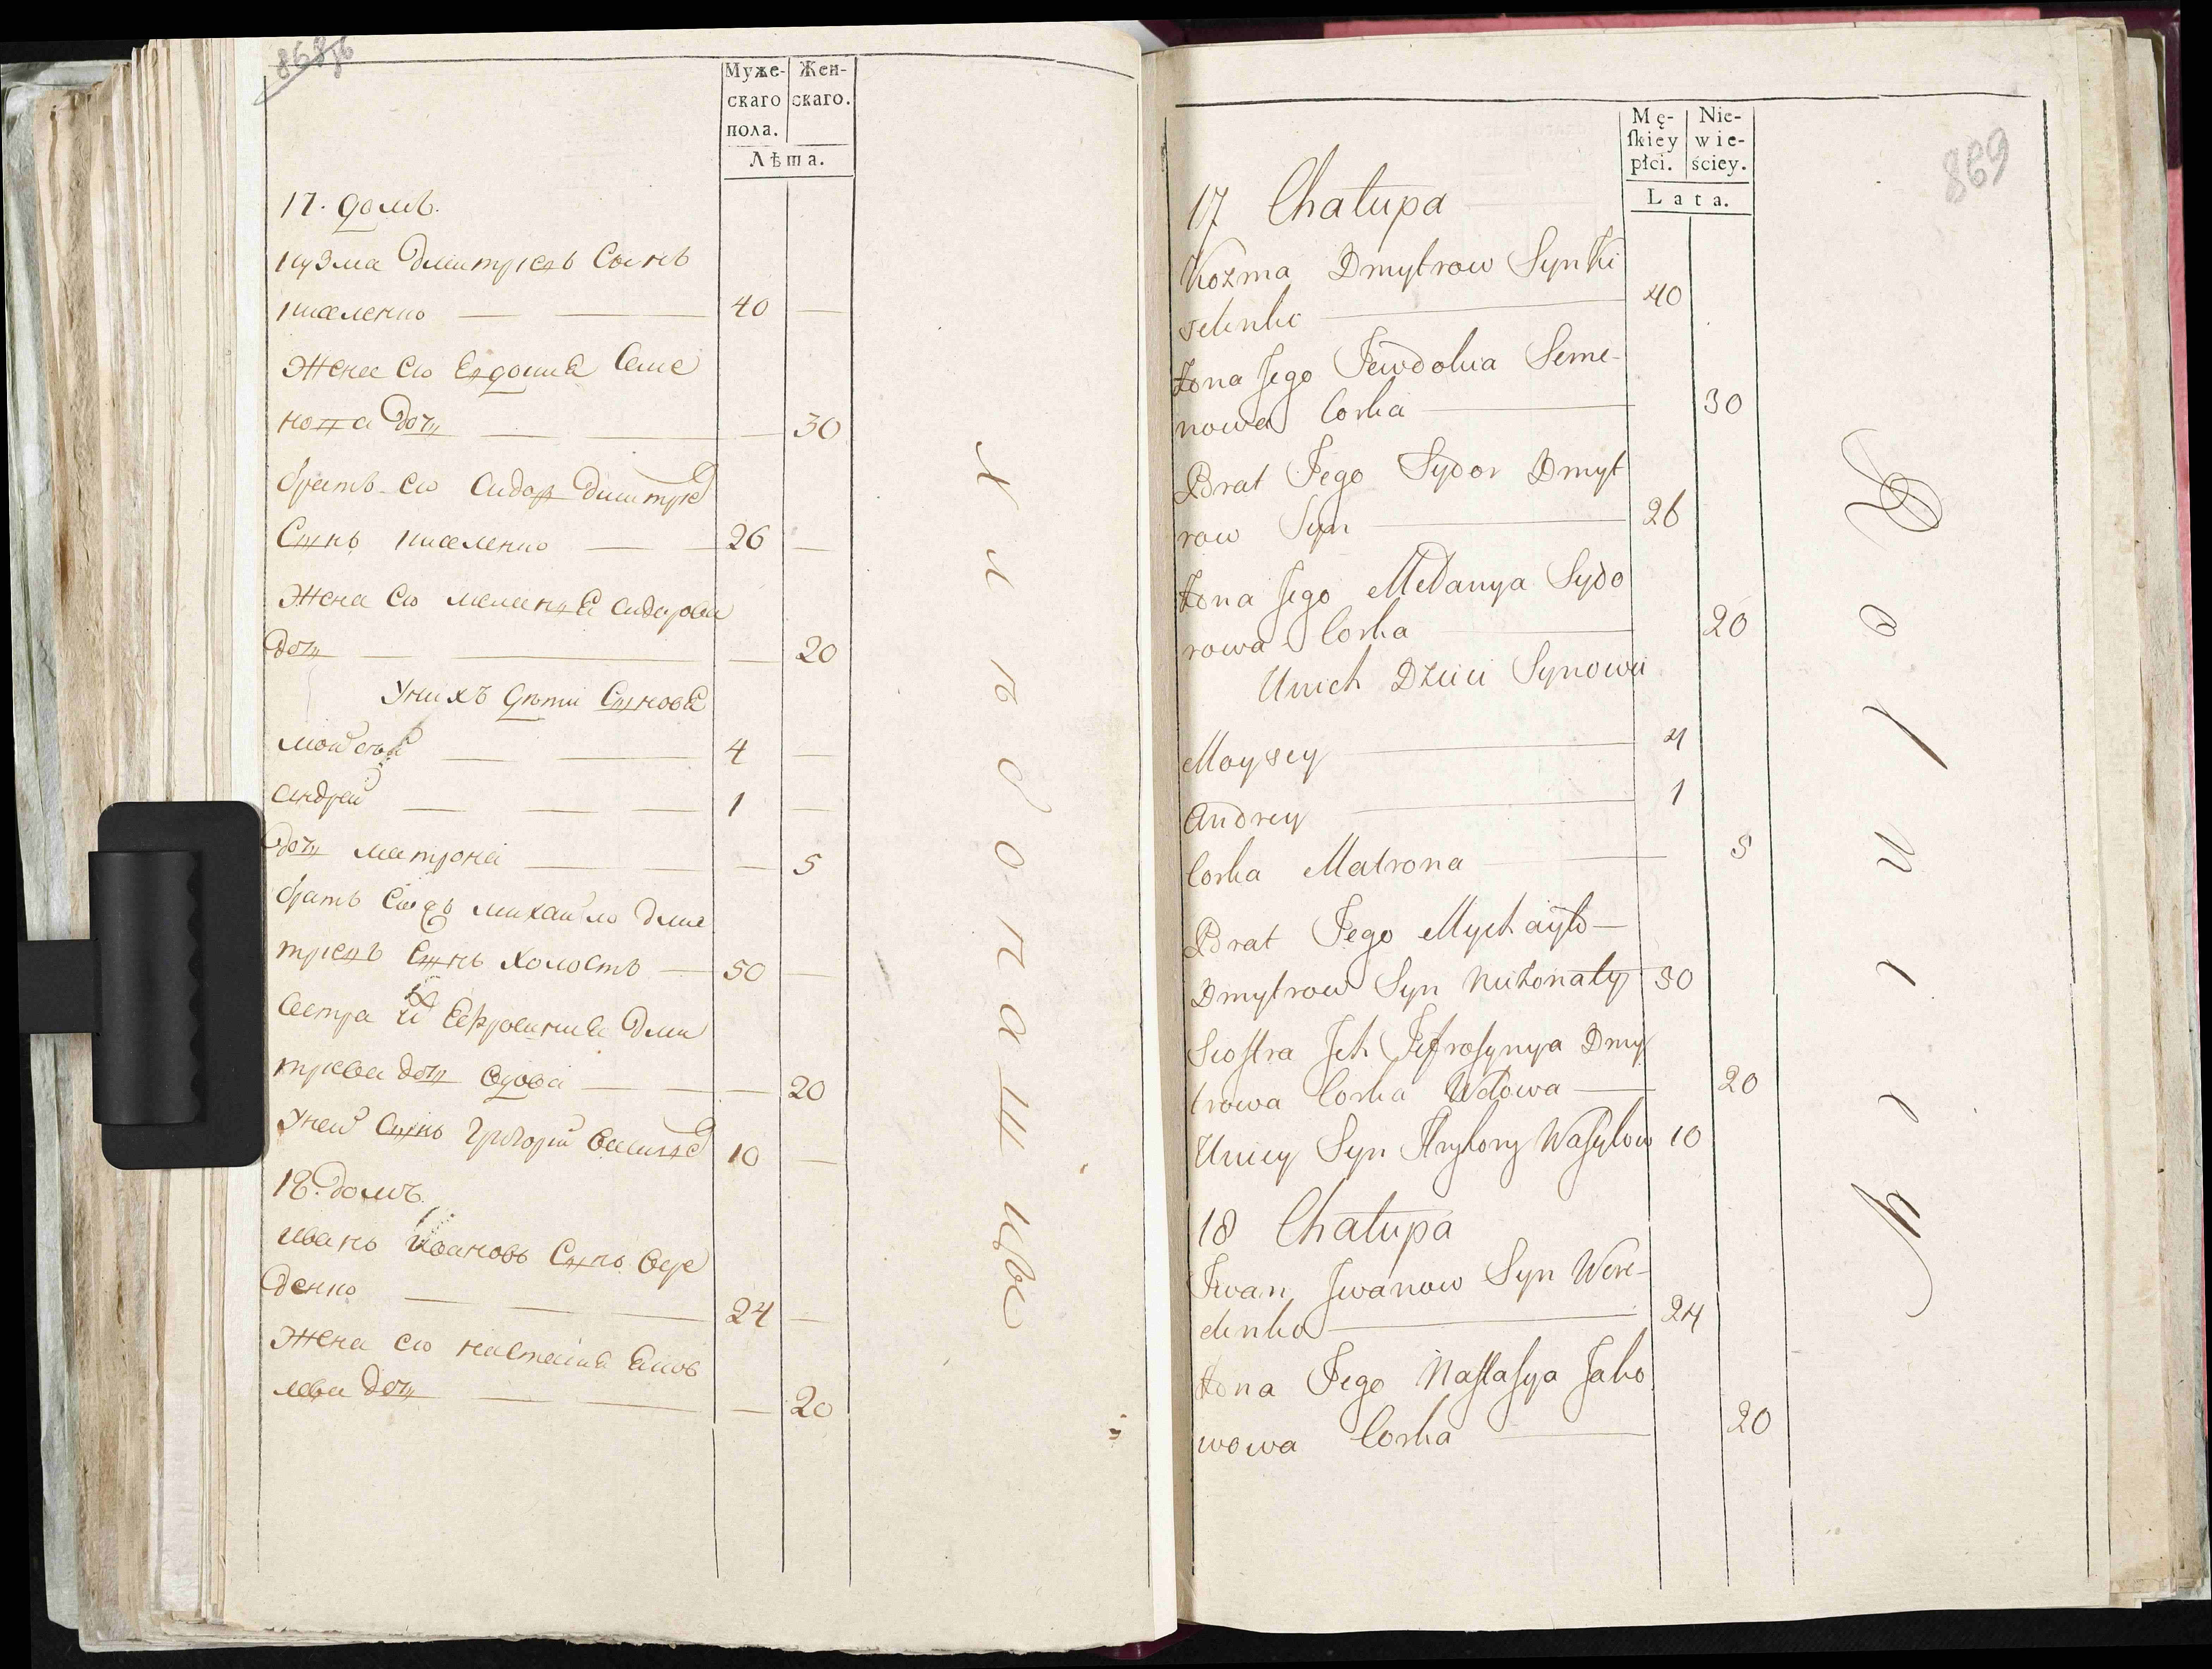 868об
Муже- Жен-
скаго скаго.
пола.
Лѣта.
17. домъ.
Кузма Дмитріевъ Сынъ
Киселенко — — 40 —
Жена его Евдокия Семе
нова дочь — — — 30
братъ его Сидор Дмитрие
Сынъ Киселенко — — 26 —
Жена его меланья сидорова
дочь — — — 20
У нихъ дѣти Сыновья
мойсей — — 4 —
андрей — — — 1 —
дочь матрона — — 5
братъ его михайло Дми
триевъ Сынъ холостъ — 50 —
Сестра их Ефросиния Дми
триева дочь вдова — — — 20
У ней Сынъ григорий василье 10 —
18. домъ.
иванъ ивановъ Сынъ вере
денко — — 24 —
Жена его настасия Яков
лева дочь — — — 20
Хлѣбопашцы
869
Mę- Nie-
skiey wie-
płci. ściey.
Lata.
17 Chałupa
Kozma Dmytrow Syn Ki
selenko — 40
Żona Jego Jewdokia Seme-
nowa Corka — 30
Brat Jego Sydor Dmyt
row Syn — 26
Żona Jego Mełanya Sydo
rowa Corka — 20
U nich Dzieci Synowie
Moysey — 4
Andrey — 1
Corka Matrona — 5
Brat Jego Mychayło —
Dmytrow Syn Nieżonaty 50
Siostra Ich Jefrosynya Dmy
trowa Corka Wdowa — 20
U niey Syn Hryhory Wasylow 10
18 Chałupa
Iwan Iwanow Syn Were-
denko — 24
Żona Jego Nastasya Jako
wowa Corka — 20
Rolnicy